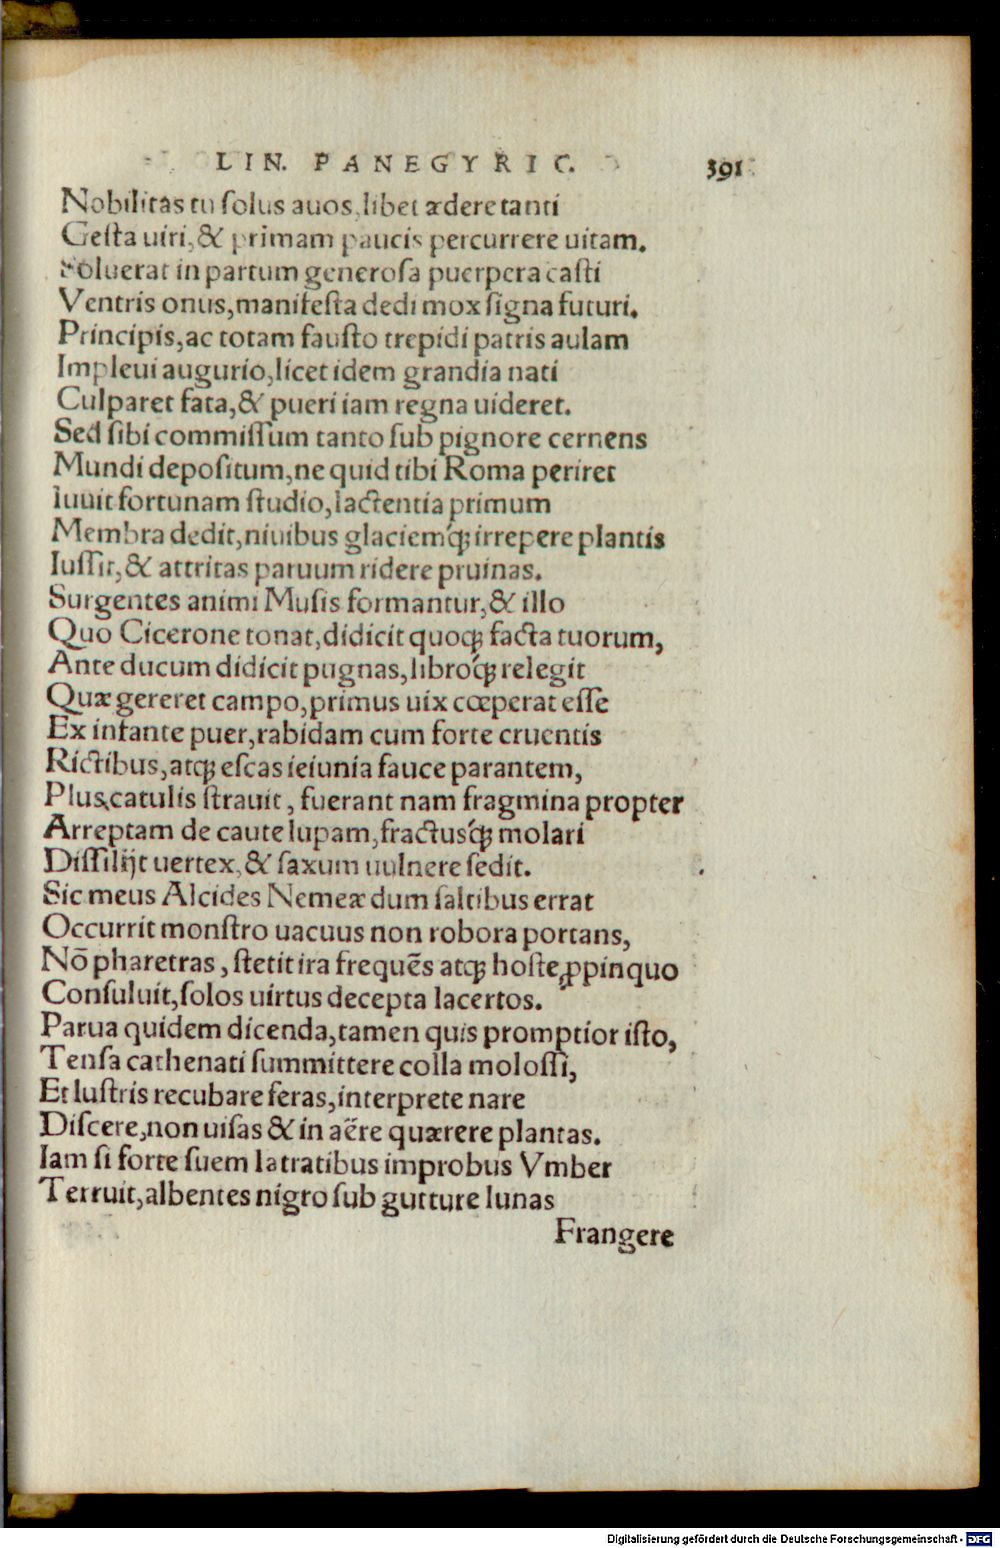 LIN. PANEGYRIC. 391
Nobilitas tu ſolus auos, libet ædere tanti
Geſta uiri, & primam paucis percurrere uitam.
Soluerat in partum generoſa puerpera caſti
Ventris onus, manifeſta dedi mox ſigna futuri.
Principis, ac totam fauſto trepidi patris aulam
Impleui augurio, licet idem grandia nati
Culparet fata, & pueri iam regna uideret.
Sed ſibi commiſſum tanto ſub pignore cernens
Mundi depoſitum, ne quid tibi Roma periret
Iuuit fortunam ſtudio, lactentia primum
Membra dedit, niuibus glaciemq́; irrepere plantis
Iuſſit, & attritas paruum ridere pruinas.
Surgentes animi Muſis formantur, & illo
Quo Cicerone tonat, didicit quoq; facta tuorum,
Ante ducum didicit pugnas, libroq́; relegit
Quæ gereret campo, primus uix cœperat eſſe
Ex infante puer, rabidam cum forte cruentis
Rictibus, atq; eſcas ieiunia fauce parantem,
Plus catulis ſtrauit, fuerant nam fragmina propter
Arreptam de caute lupam, fractusq́; molari
Diſſilijt uertex, & ſaxum uulnere ſedit.
Sic meus Alcides Nemeæ dum ſaltibus errat
Occurrit monſtro uacuus non robora portans,
Nō pharetras, ſtetit ira frequẽs atq; hoſte ꝓpinquo
Conſuluit, ſolos uirtus decepta lacertos.
Parua quidem dicenda, tamen quis promptior iſto,
Tenſa cathenati ſummittere colla moloſſi,
Et luſtris recubare feras, interprete nare
Diſcere, non uiſas & in aëre quærere plantas.
Iam ſi forte ſuem latratibus improbus Vmber
Terruit, albentes nigro ſub gutture lunas
Frangere
Digitalisierung gefördert durch die Deutsche Forschungsgemeinschaft - DFG